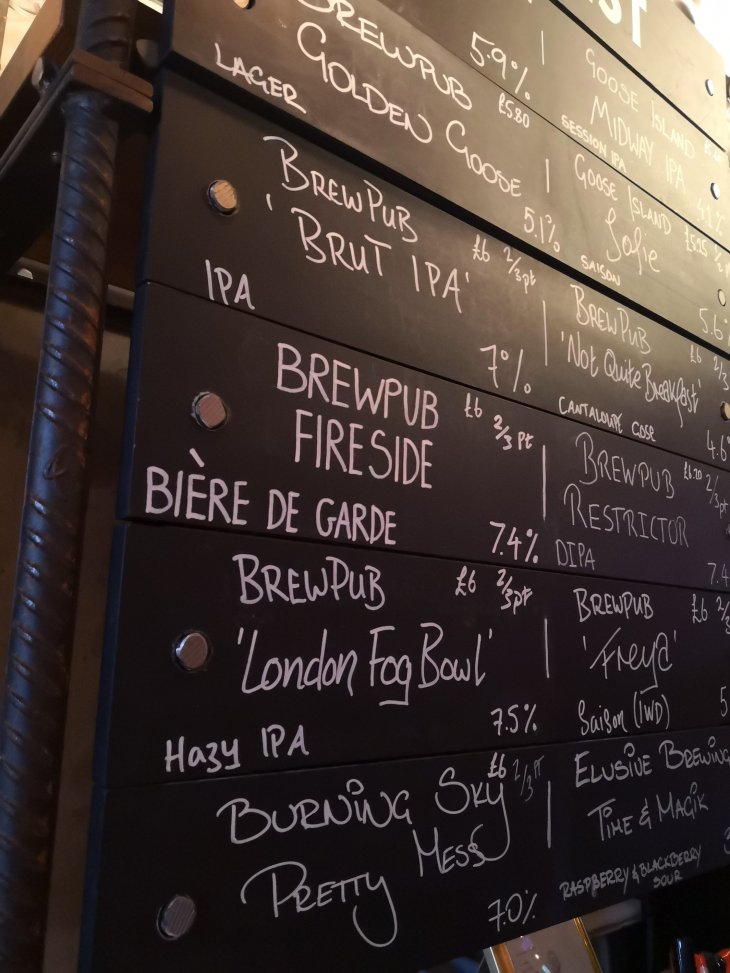 ST
BREWPUB 5.9%
GOLDEN GOOSE £5.80
LAGER 5.1%
BREWPUB £6 2/3pt
'BRUT IPA'
IPA 7%
BREWPUB £6 2/3 pt
FIRESIDE
BIÈRE DE GARDE 7.4%
BREWPUB £6 2/3pt
'London Fog Bowl'
HAZY IPA 7.5%
BURNING SKY £6 2/3 PT
PRETTY MESS
7.0%
GOOSE ISLAND
MIDWAY IPA
SESSION IPA 4.1%
GOOSE ISLAND £5.25
Sofie
SAISON 5.6
BREWPUB £6 2/3
'Not Quite Breakfast'
CANTALOUPE GOSE 4.6
BREWPUB £6.20 2/3pt
RESTRICTOR
DIPA 7.4
BREWPUB £6 2/3
'Freya'
Saison (IWD) 5
ELUSIVE BREWING
TIME & MAGIK
RASPBERRY & BLACKBERRY
SOUR